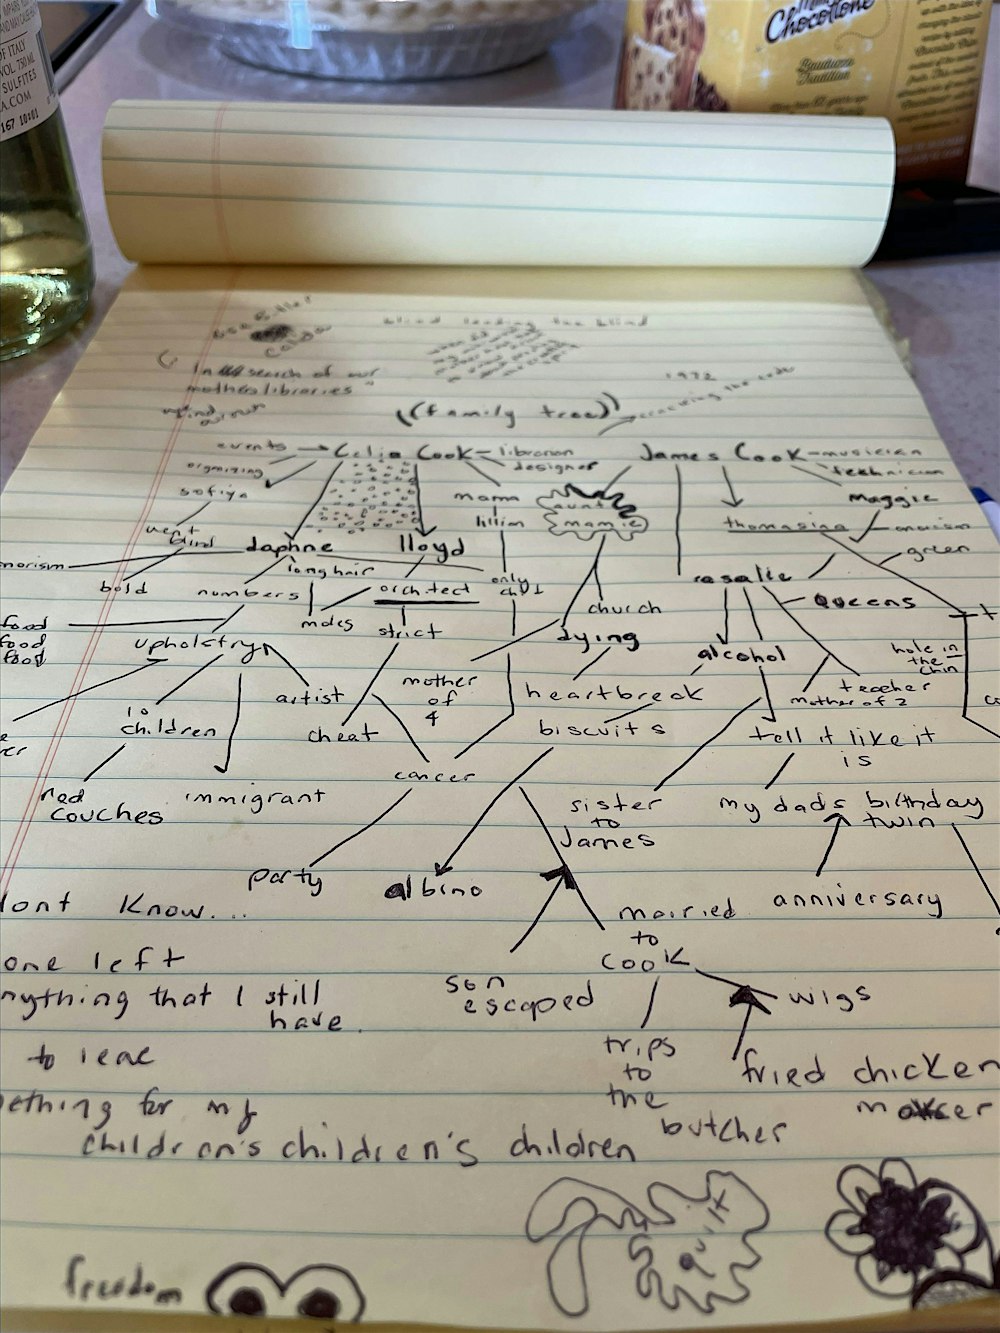 OF ITALY
VOL 750 ML
SULFITES
A.COM
167 10:01
Chocottone
Bauducco
Tradition
blind leading the blind
In search of our
mothers libraries"
1972
cracking the code
((family tree))
events
Celia Cook
librarian
James Cook
musician
organizing
designer
technician
sofiya
mama
aunt
maggie
lillian
mamie
thomasina
went
blind
daphne
lloyd
green
bold
long hair
only
child
rosalie
numbers
architect
church
Queens
food
moles
food
upholstry
strict
dying
alcohol
hole in
food
the
chin
artist
mother
heartbreak
teacher
of
mother of 2
4
10
children
cheat
biscuits
tell it like it
is
cancer
red
couches
immigrant
sister
to
James
my dads birthday
twin
party
albino
anniversary
dont know...
married
to
one left
cook
son
escaped
nything that I still
have.
wigs
trips
to
the
butcher
fried chicken
maker
ething for my
children's children's children
quilt
freedom